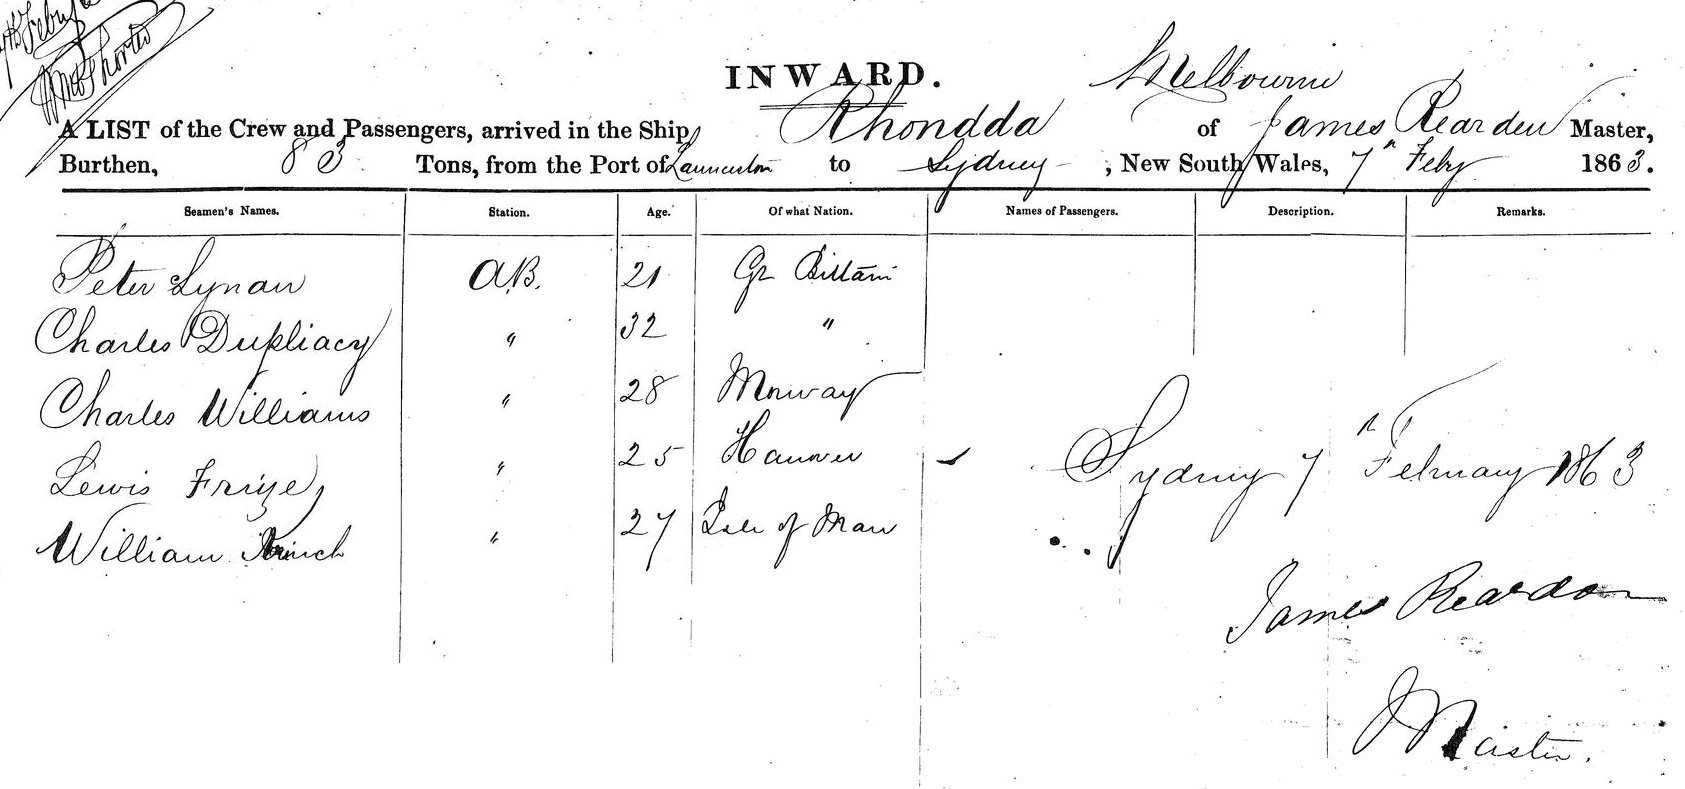 7th Feby
INWARD.
Melbourne
A LIST of the Crew and Passengers, arrived in the Ship Rhondda of James Rearden Master,
Burthen, 83 Tons, from the Port of Launceston to Sydney, New South Wales, 7th Feby 1863.
Seamen's Names. Station. Age. Of what Nation. Names of Passengers. Description. Remarks.
Peter Lynan A.B. 21 Gt Brittain
Charles Dupliacy " 32 "
Charles Williams " 28 Norway
Lewis " 25 Hanover
William " 27 Isle of Man
Sydney 7th February 1863
James Reardon
Master.